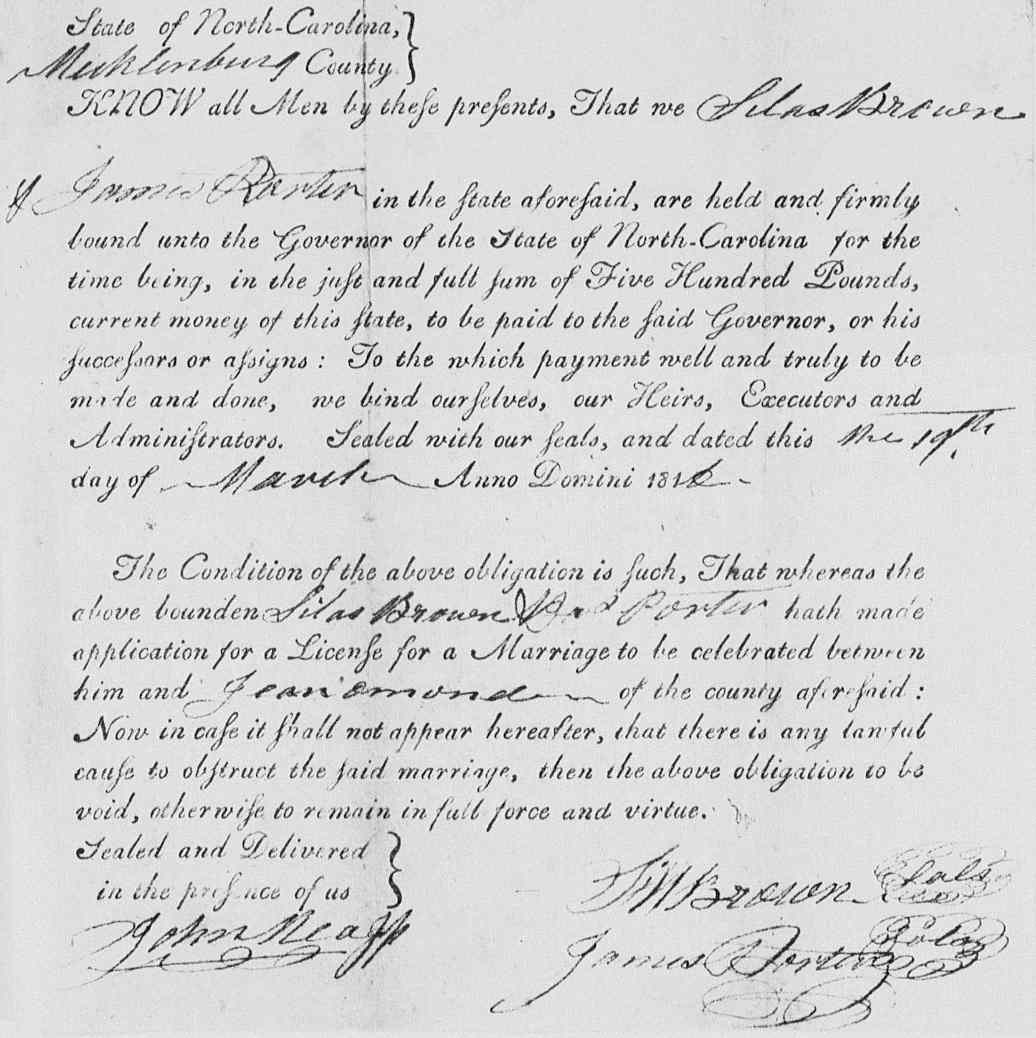 State of North-Carolina,
Mecklenburg County.
KNOW all Men by these presents, That we Silas Brown
& James Porter in the State aforesaid, are held and firmly
bound unto the Governor of the State of North-Carolina for the
time being, in the just and full sum of Five Hundred Pounds,
current money of this state, to be paid to the said Governor, or his
successors or assigns: To the which payment well and truly to be
made and done, we bind ourselves, our Heirs, Executors and
Administrators. Sealed with our seals, and dated this the 19th
day of March Anno Domini 1816
The Condition of the above obligation is such, That whereas the
above bounden Silas Brown Porter hath made
application for a License for a Marriage to be celebrated between
him and Jean of the county aforesaid:
Now in case it shall not appear hereafter, that there is any lawful
cause to obstruct the said marriage, then the above obligation to be
void, otherwise to remain in full force and virtue.
Sealed and Delivered
in the presence of us
John
Brown
James Porter